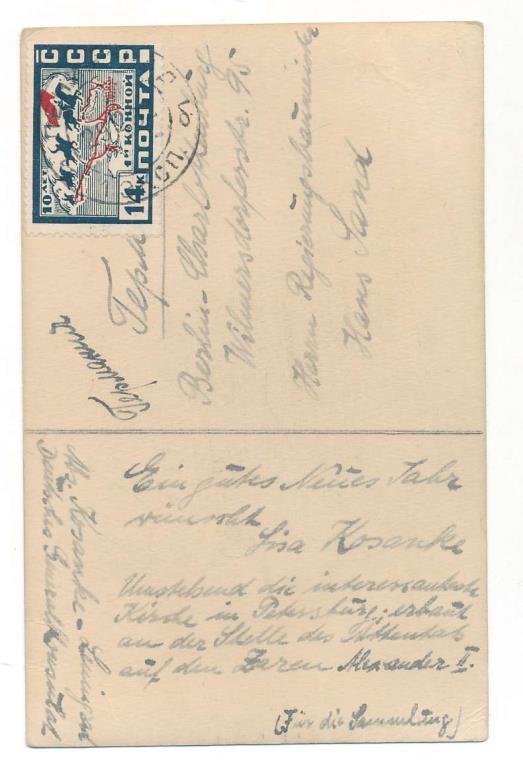 СССР
ПОЧТА
14к
10 ЛЕТ
1й КОННОЙ
Германия
Berlin-Charlottenburg
Wilmersdorferstr. 95
Herrn Regierungsbaumeister
Hans Sand
Ein gutes Neues Jahr
wünscht
Lisa Kosanke
Umstehend die interessanteste
Kirche in Petersburg; erbaut
an der Stelle des Attentats
auf den Zaren Alexander II.
(Für die Sammlung)
Kosanke - Leningrad
Deutsches Generalkonsulat